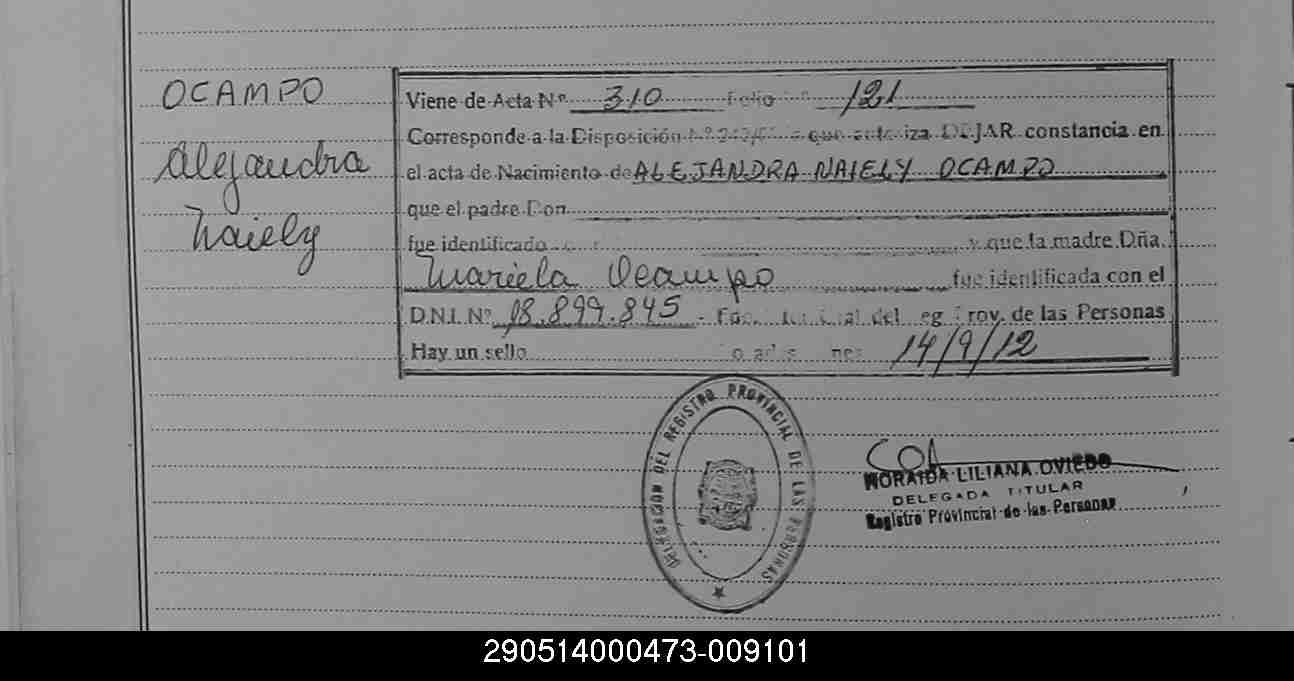 OCAMPO
Alejandra
Naiely
Viene de Acta Nº 310 Folio 121
Corresponde a la Disposición que autoriza DEJAR constancia en
el acta de Nacimiento de ALEJANDRA NAIELY OCAMPO
que el padre Don
fue identificado y que la madre Dña.
Mariela Ocampo fue identificada con el
D.N.I. Nº 18.899.845 - Prov. de las Personas
Hay un sello 14/9/12
DELEGACION DEL REGISTRO PROVINCIAL DE LAS PERSONAS
NORAIDA LILIANA OVIEDO
DELEGADA TITULAR
Registro Provincial de las Personas
290514000473-009101